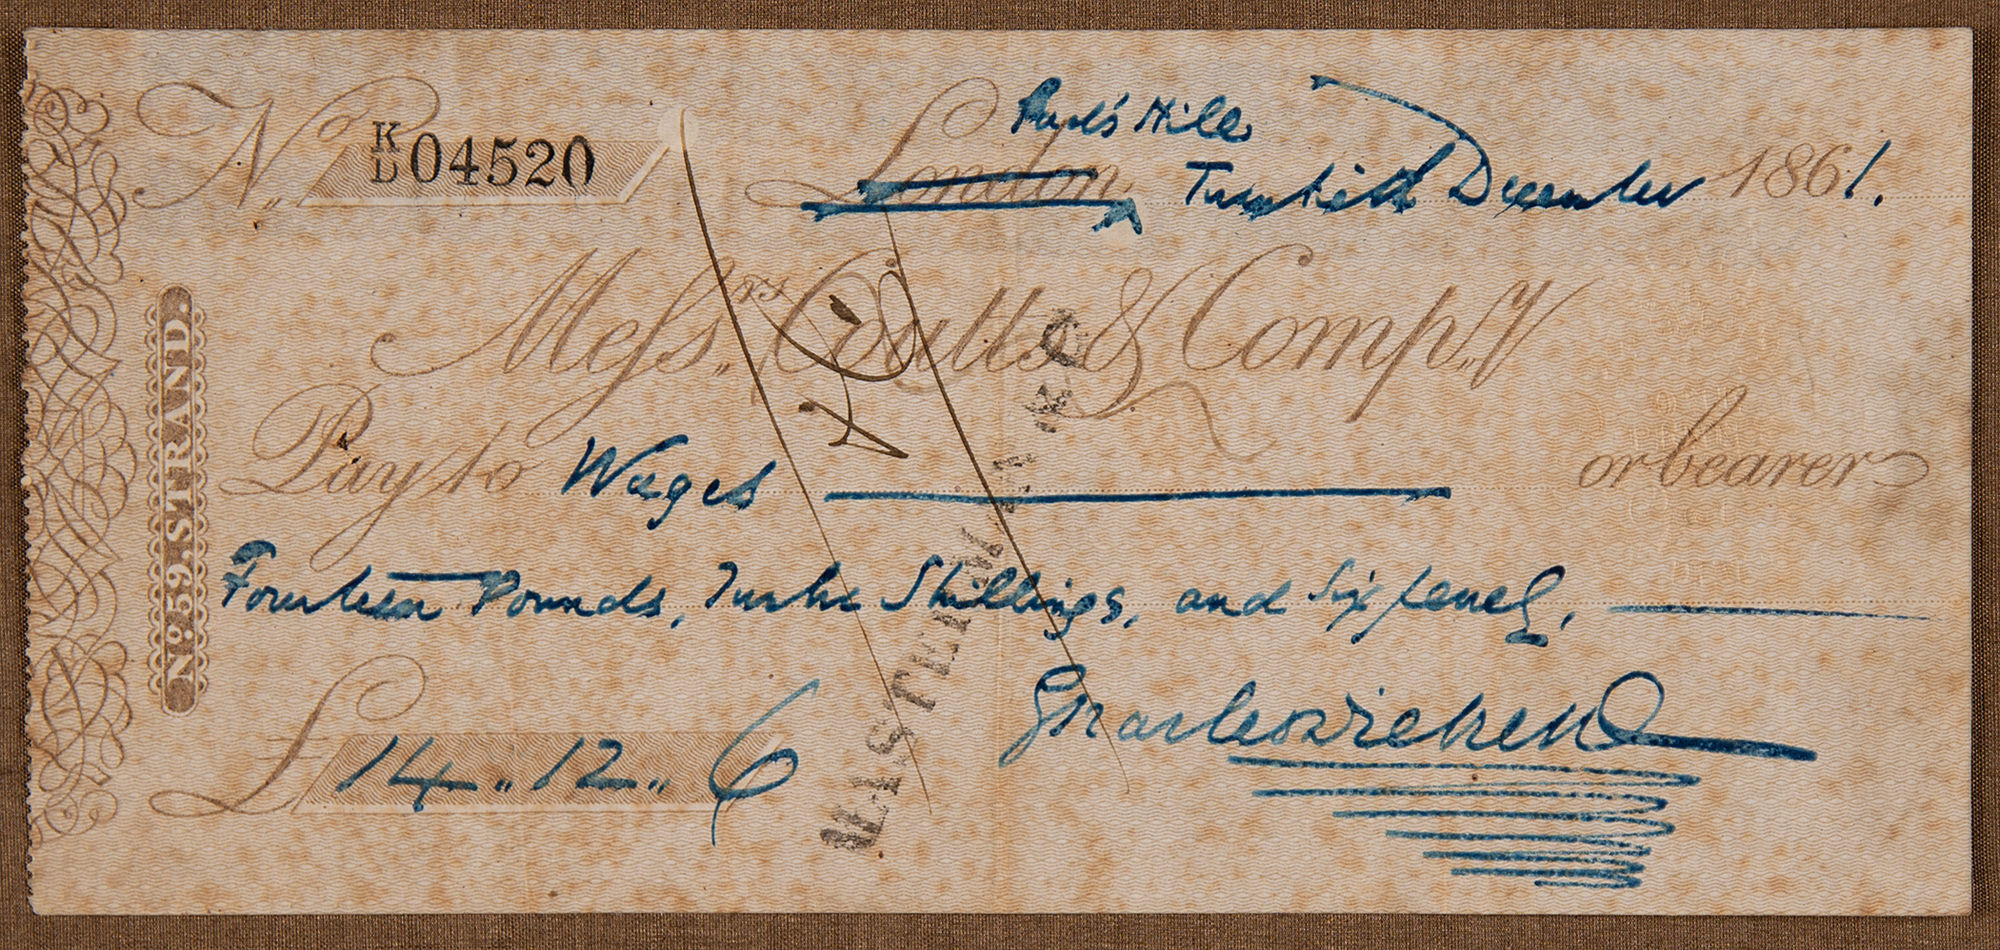 No. K/D 04520
Gad's Hill
London, Twentieth December 1861.
Messrs. Coutts & Compy.
Pay to Wages or bearer
Fourteen Pounds, Twelve Shillings, and Sixpence,
£ 14 .. 12 .. 6
Charles Dickens
No. 59. STRAND.